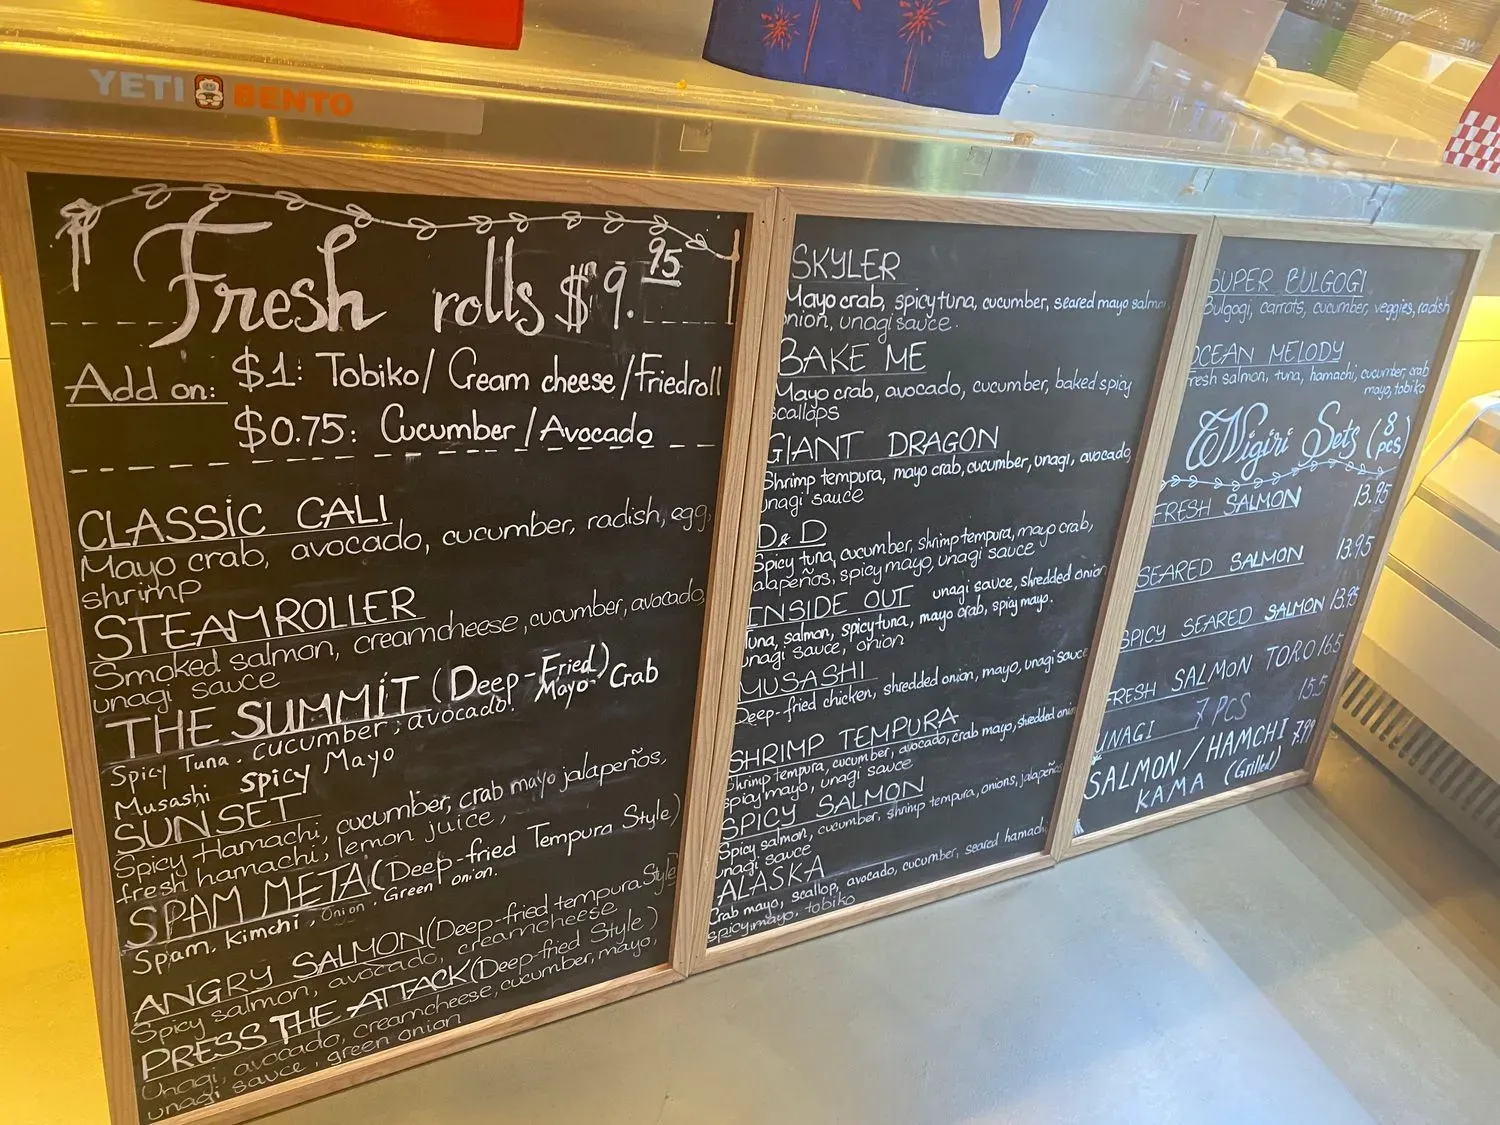 YETI BENTO
Fresh rolls $9.95
Add on: $1: Tobiko/ Cream cheese/Friedroll
$0.75: Cucumber/Avocado
CLASSIC CALI
Mayo crab, avocado, cucumber, radish, egg,
shrimp
STEAMROLLER
Smoked salmon, creamcheese, cucumber, avocado,
unagi sauce
THE SUMMIT (Deep-Fried)
Spicy Tuna. cucumber, avocado. Mayo- Crab
Musashi Spicy Mayo
SUNSET
Spicy Hamachi, cucumber, crab mayo jalapeños,
fresh hamachi, lemon juice,
SPAM META (Deep-fried Tempura Style)
Spam. Kimchi, Onion. Green onion.
ANGRY SALMON (Deep-fried tempura Style)
Spicy salmon, avocado, creamcheese
PRESS THE ATTACK (Deep-fried Style)
Unagi, avocado, creamcheese, cucumber, mayo,
unagi sauce, green onion
SKYLER
Mayo crab, spicy tuna, cucumber, seared mayo salmon,
onion, unagi sauce.
BAKE ME
Mayo crab, avocado, cucumber, baked spicy
scallops
GIANT DRAGON
Shrimp tempura, mayo crab, cucumber, unagi, avocado,
unagi sauce
D&D
Spicy tuna, cucumber, shrimp tempura, mayo crab,
jalapeños, spicy mayo, unagi sauce
INSIDE OUT unagi sauce, shredded onion
Tuna, salmon, spicy tuna, mayo crab, spicy mayo.
unagi sauce, onion
MUSASHI
Deep-fried chicken, shredded onion, mayo, unagi sauce
SHRIMP TEMPURA
Shrimp tempura, cucumber, avocado, crab mayo, shredded onion
spicy mayo, unagi sauce
SPICY SALMON
Spicy salmon, cucumber, shrimp tempura, onions, jalapeños
unagi sauce
ALASKA
Crab mayo, scallop, avocado, cucumber, seared hamachi
spicy mayo, tobiko
SUPER BULGOGI
Bulgogi, carrots, cucumber, veggies, radish
OCEAN MELODY
Fresh salmon, tuna, hamachi, cucumber, crab
mayo, tobiko
Nigiri Sets (8 pcs)
FRESH SALMON 13.95
SEARED SALMON 13.95
SPICY SEARED SALMON 13.95
FRESH SALMON TORO 16.5
UNAGI 7 PCS 15.5
SALMON/HAMCHI 7.99
KAMA (Grilled)